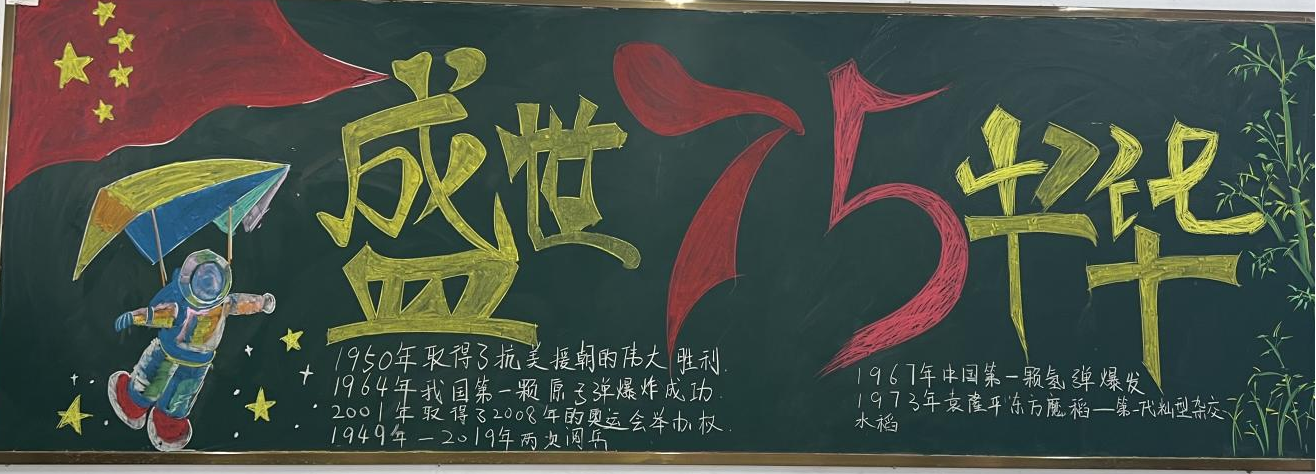 盛世75年华
1950年取得了抗美援朝的伟大胜利.
1964年我国第一颗原子弹爆炸成功.
2001年取得了2008年的奥运会举办权.
1949年-2019年两次阅兵
1967年中国第一颗氢弹爆发
1973年袁隆平东方魔稻—第一代籼型杂交
水稻